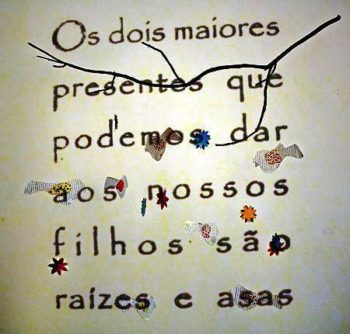 Os dois maiores
presentes que
podemos dar
aos nossos
filhos são
raízes e asas